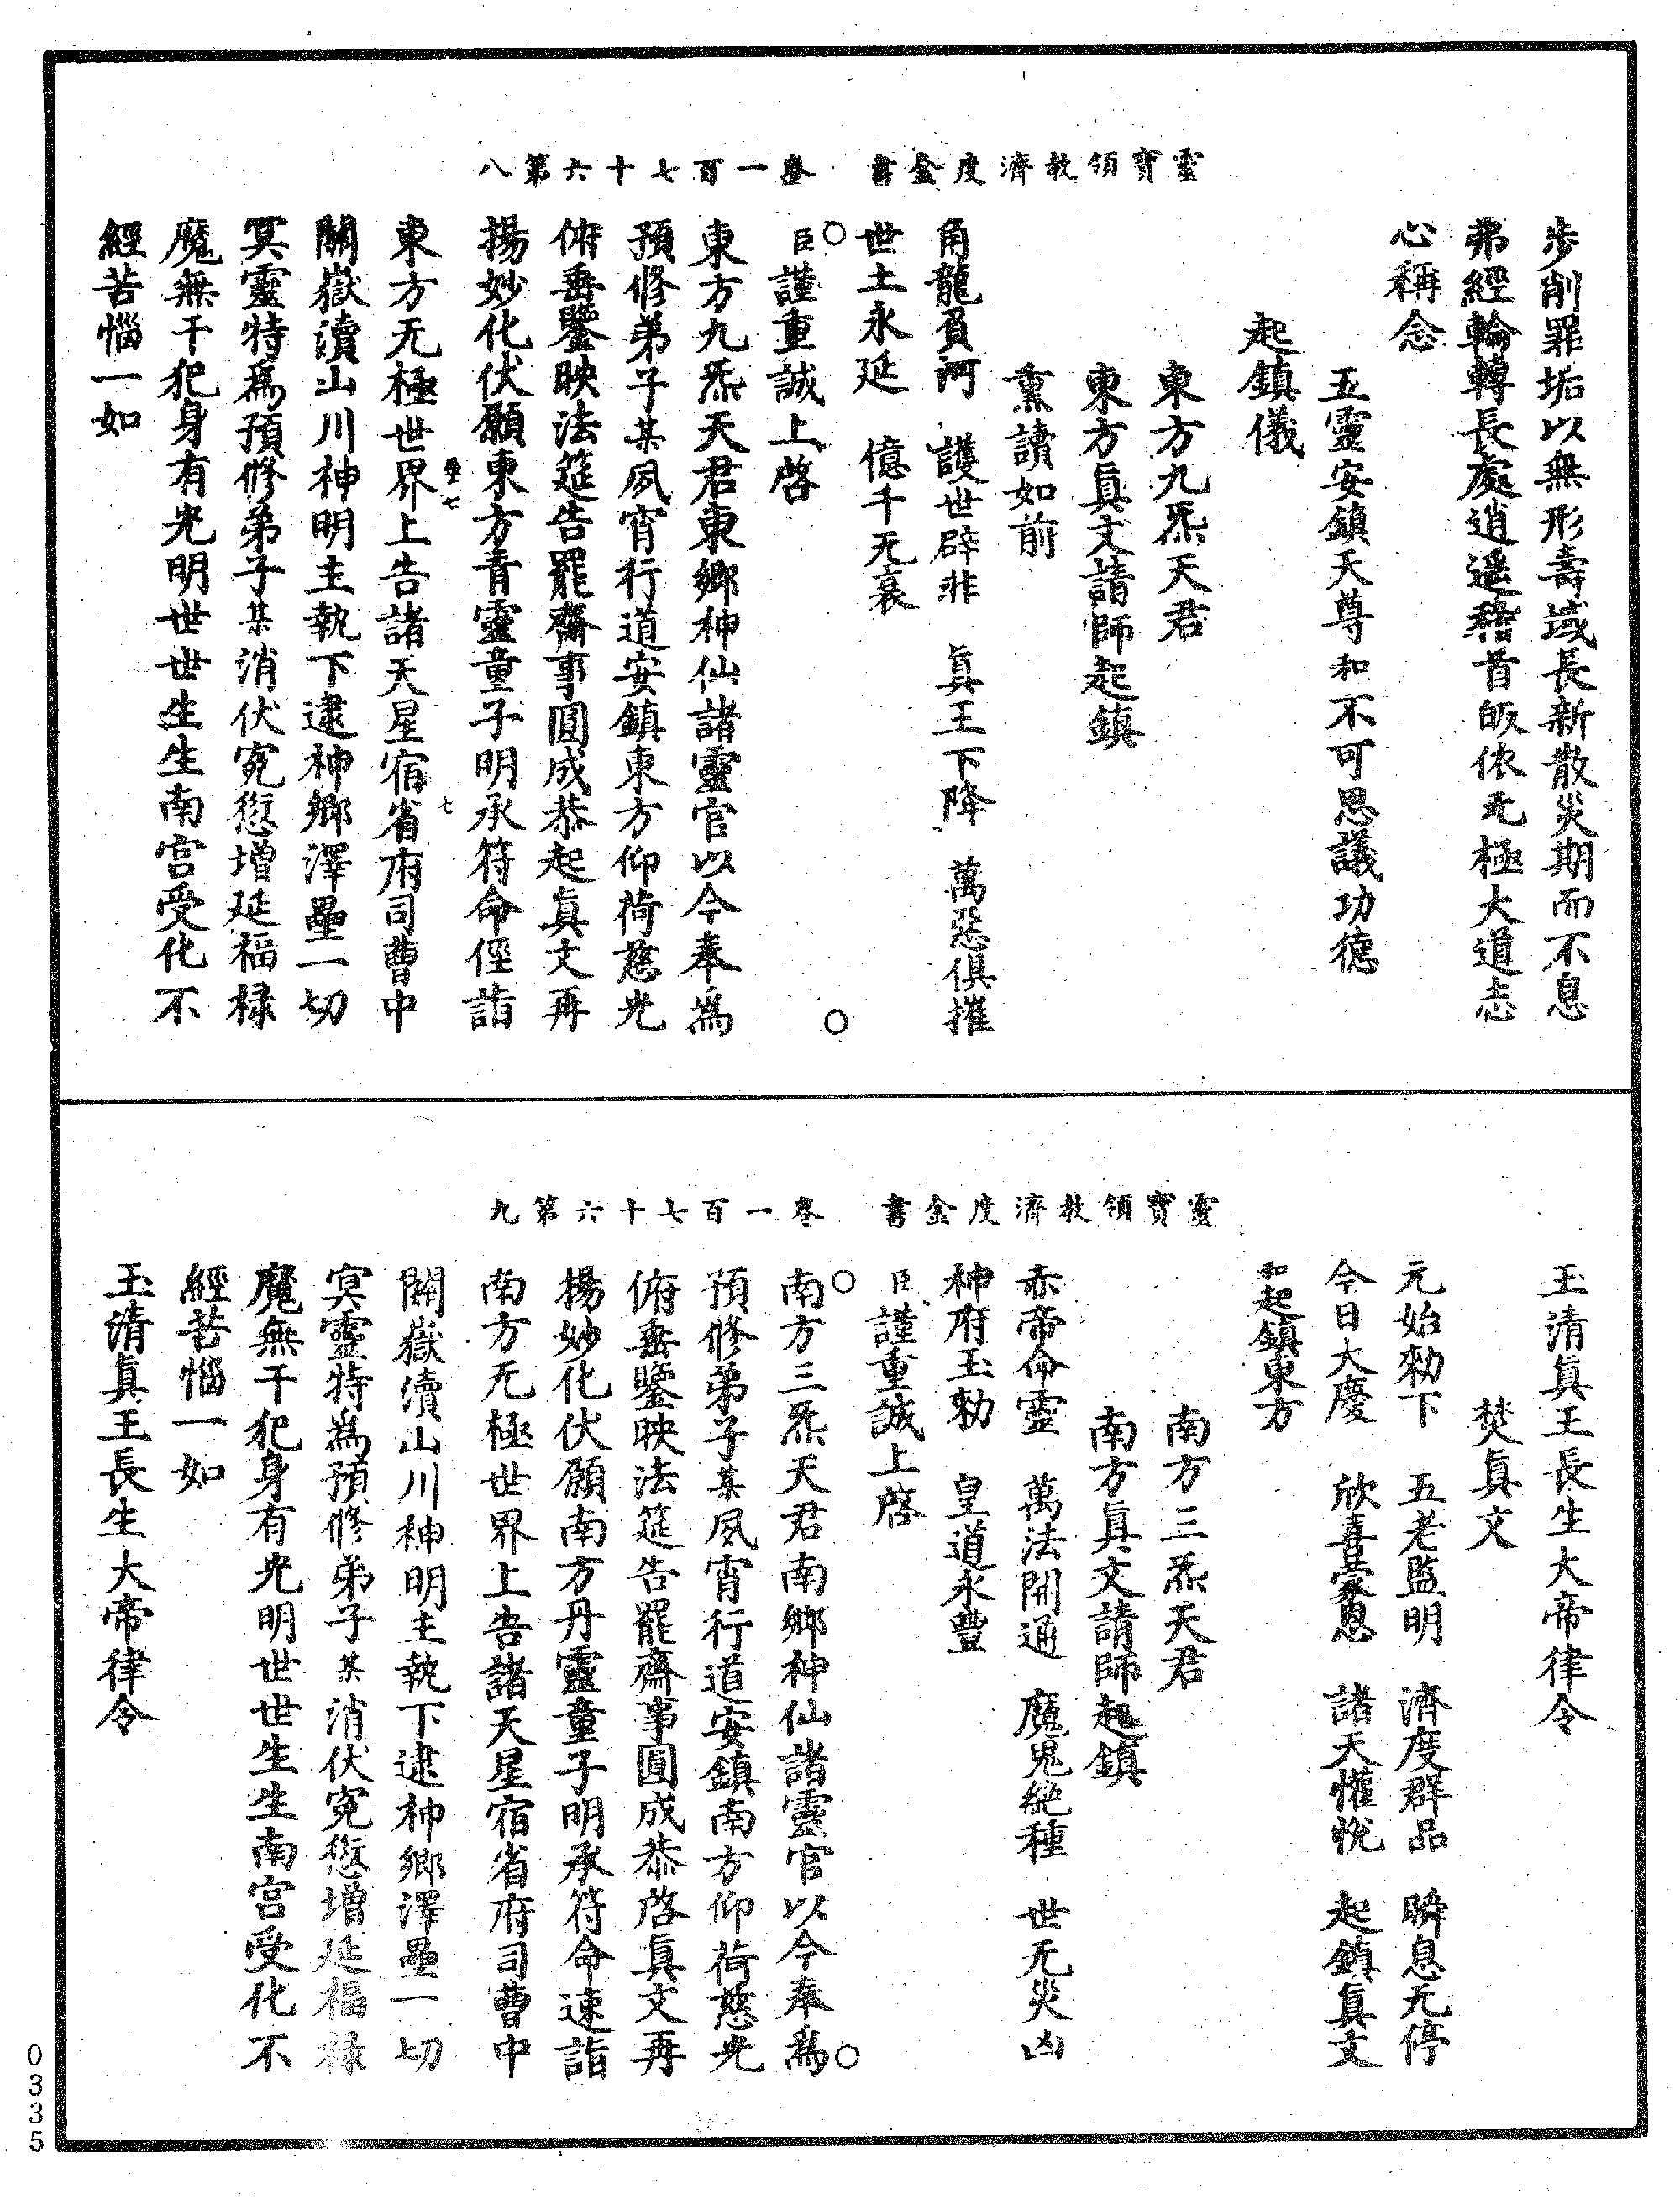 靈寶領教濟度金書　卷一百七十六第八
步削罪垢以無形壽域長新散災期而不息
弗經輪轉長處逍遥稽首皈依无極大道志
心稱念
五靈安鎮天尊和不可思議功德
起鎮儀
東方九炁天君
東方眞文請師起鎮
熏讀如前
角龍負河　護世辟非　眞王下降　萬惡俱摧
世土永延　億千无衰
臣謹重誠上啓
東方九炁天君東鄉神仙諸靈官以今奉爲
預修弟子某夙宵行道安鎮東方仰荷慈光
俯垂鑒映法筵告罷齋事圓成恭起眞文再
揚妙化伏願東方青靈童子明承符命俓詣
東方无極世界上告諸天星宿省府司曹中
關嶽瀆山川神明主執下逮神鄉澤壘一切
冥靈特爲預修弟子某消伏寃愆增延福祿
魔無干犯身有光明世世生生南宫受化不
經苦惱一如
靈寶領教濟度金書　卷一百七十六第九
玉清眞王長生大帝律令
焚眞文
元始勑下　五老監明　濟度群品　瞬息无停
今日大慶　欣喜蒙恩　諸天懽悅　起鎮眞文
和起鎮東方
南方三炁天君
南方眞文請師起鎮
赤帝命靈　萬法開通　魔鬼絶種　世无災凶
神府玉勑　皇道永豐
臣謹重誠上啓
南方三炁天君南鄉神仙諸靈官以今奉爲
預修弟子某夙宵行道安鎮南方仰荷慈光
俯垂鑒映法筵告罷齋事圓成恭啓眞文再
揚妙化伏願南方丹靈童子明承符命速詣
南方无極世界上告諸天星宿省府司曹中
關嶽瀆山川神明主執下逮神鄉澤壘一切
冥靈特爲預修弟子某消伏寃愆增延福祿
魔無干犯身有光明世世生生南宫受化不
經苦惱一如
玉清眞王長生大帝律令
0335